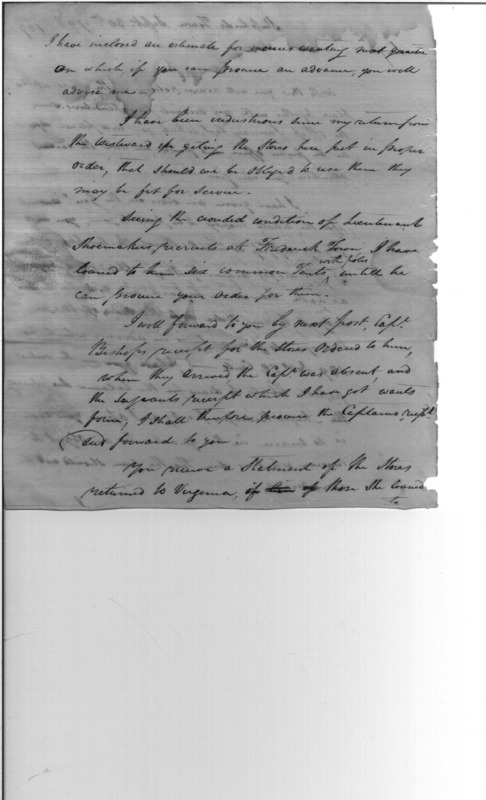 I have inclosed an estimate for monies wanting next quarter
on which if you can procure an advance, you will
advise me —
I have been industrious since my return from
the Westward in geting the Stores here put in proper
order, that should we be obliged to use them they
may be fit for service.
Seeing the crouded condition of Lieutenant
Shoemakers recruits at Frederick Town, I have
with poles
loaned to him six common Tents, untill he
can procure your order for them.
I will forward to you by next post, Capt.
Bishops receipt for the Stores ordered to him,
when they arrived the Capt. was absent, and
the Sarjeants receipt which I have got, wants
form, I shall therefore procure the Captains rect.
and forward to you
You receive a Statement of the Stores
returned to Virginia, of those She loaned
to